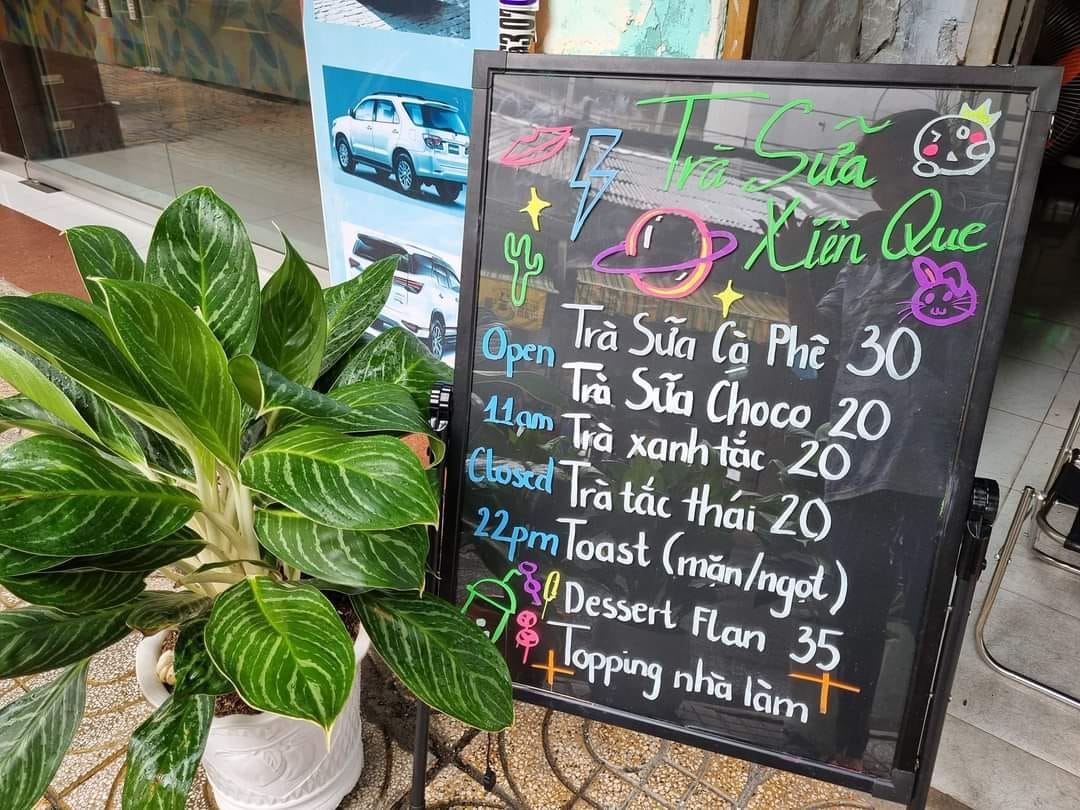 Trà Sữa
Xiên Que
Trà Sữa Cà Phê 30
Open
Trà Sữa Choco 20
11am
Trà xanh tắc 20
Closed
Trà tắc thái 20
22pm
Toast (mặn/ngọt)
Dessert Flan 35
Topping nhà làm